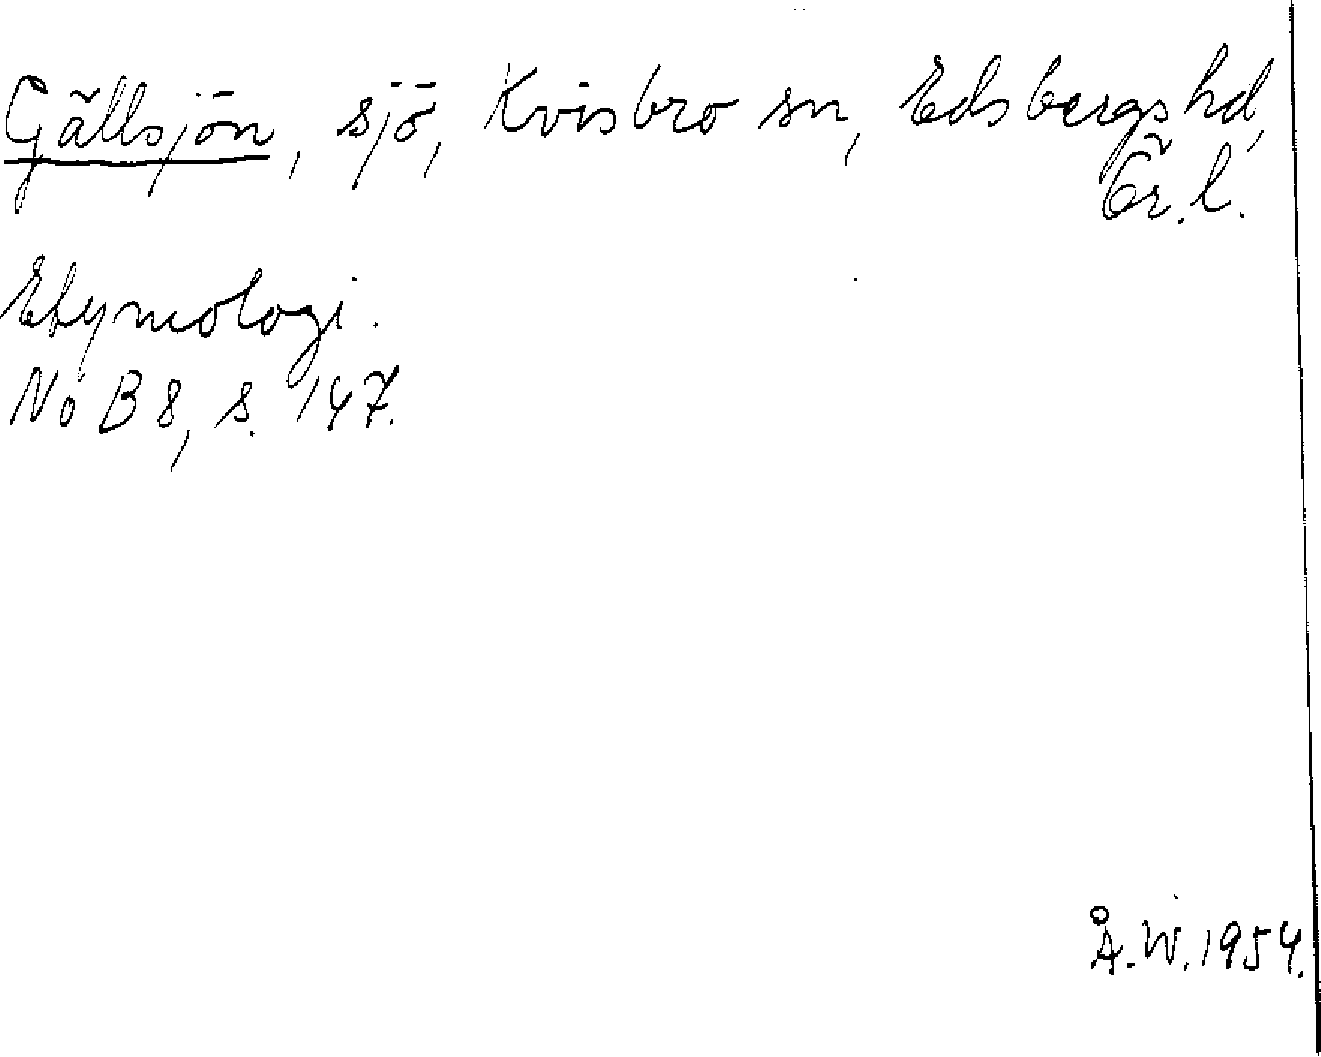 Gällsjön, sjö, Kvisbro sn, Edsbergs hd,
Ör. l.
Etymologi.
NoB 8, s. 147.
Å. W. 1954.